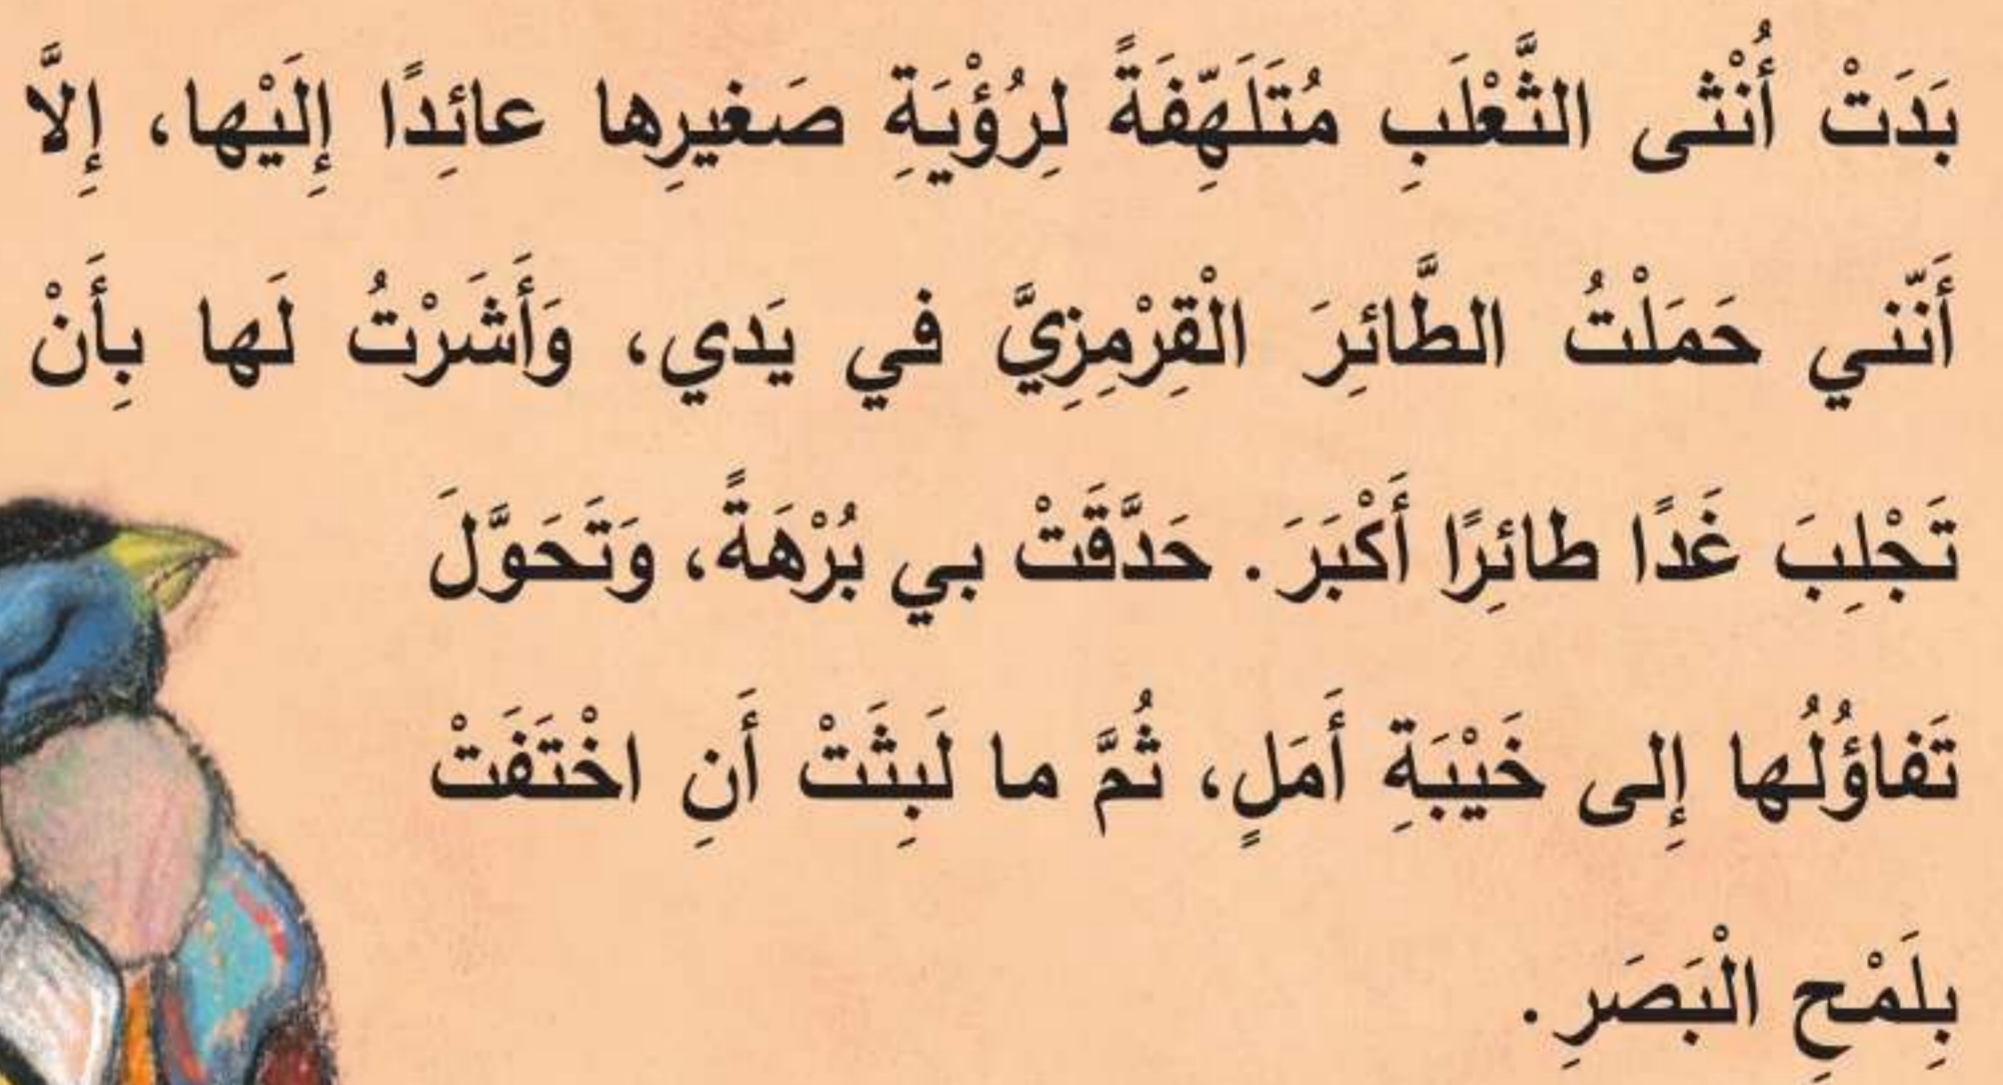 بَدَتْ أُنْثى الثَّعْلَبِ مُتَلَهِّفَةً لِرُؤْيَةِ صَغيرِها عائِدًا إِلَيْها، إِلَّا
أَنَّني حَمَلْتُ الطَّائِرَ الْقِرْمِزِيَّ في يَدي، وَأَشَرْتُ لَها بِأَنْ
تَجْلِبَ غَدًا طائِرًا أَكْبَرَ. حَدَّقَتْ بي بُرْهَةً، وَتَحَوَّلَ
تَفاؤُلُها إِلى خَيْبَةِ أَمَلٍ، ثُمَّ ما لَبِثَتْ أَنِ اخْتَفَتْ
بِلَمْحِ الْبَصَرِ.